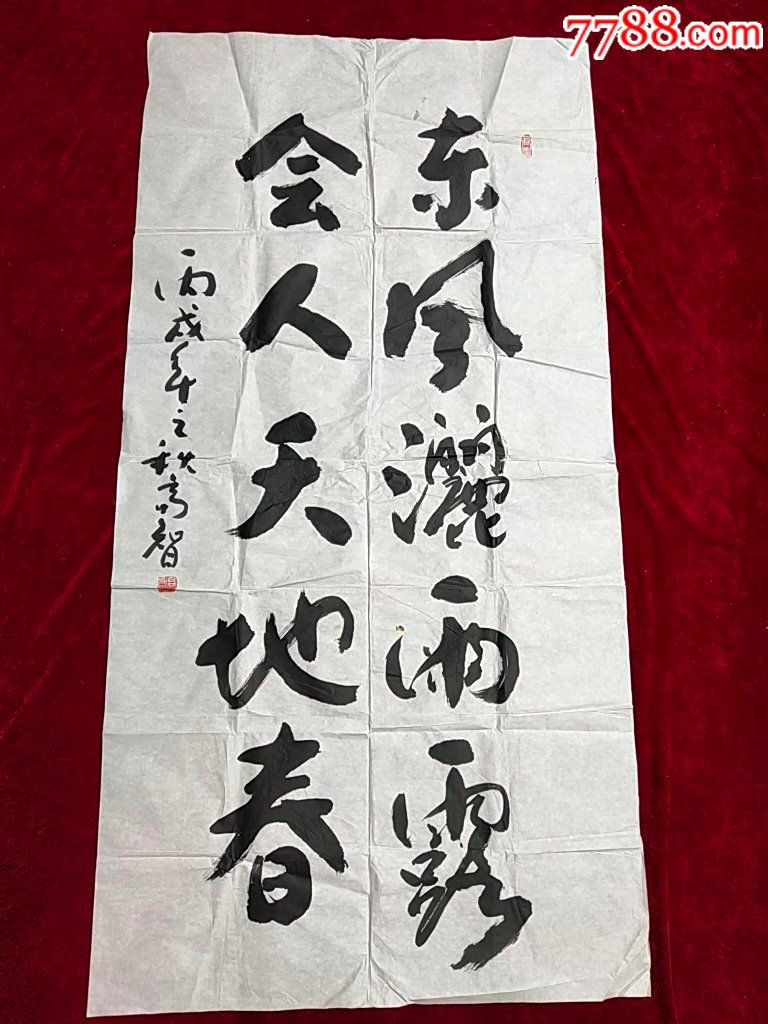 7788.com
东风灑雨露
会人天地春
丙戌年之秋高智